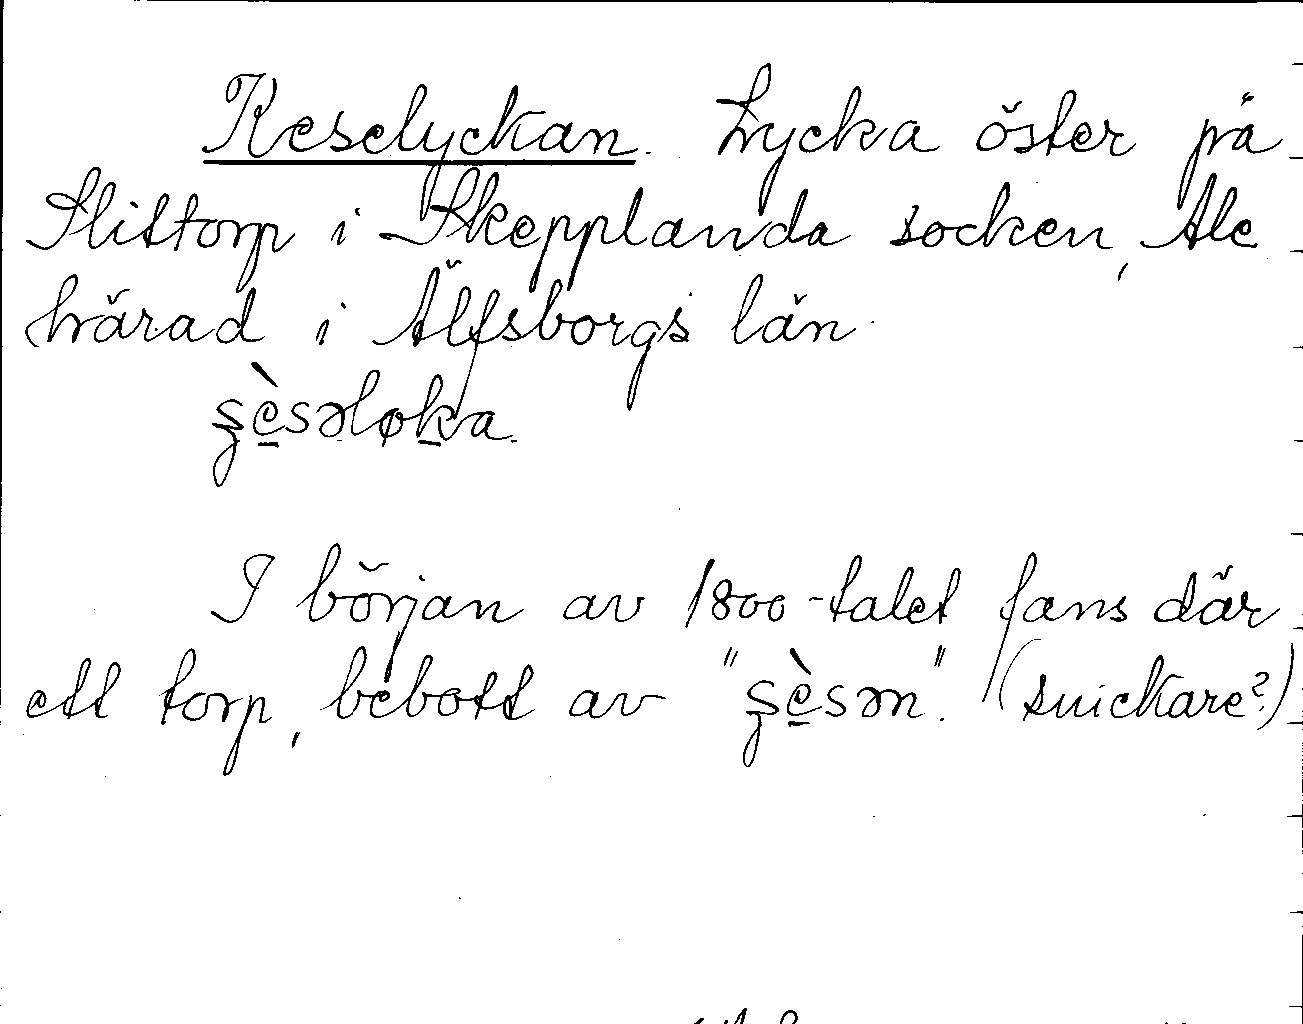 Keselyckan. Lycka öster på
Slittorp i Skepplanda socken, Ale
härad i Älfsborgs län.
I början av 1800-talet fans där
ett torp, bebott av (snickare?)